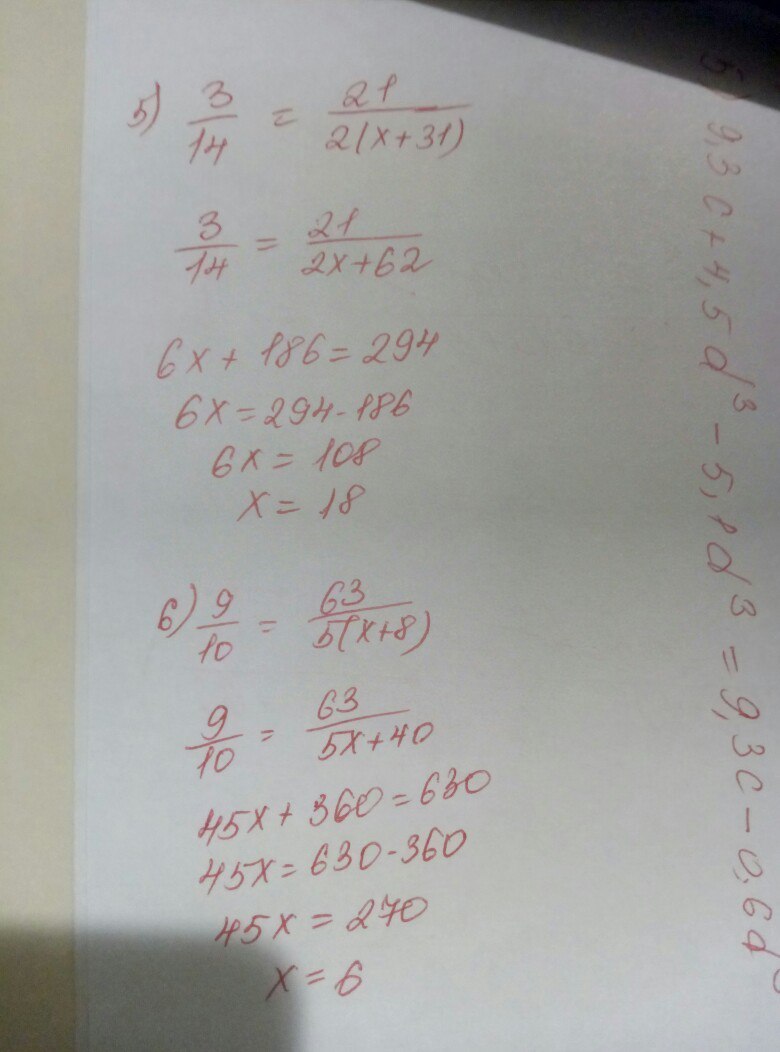 5) 3/14 = 21/2(x+31)
3/14 = 21/2x+62
6x + 186 = 294
6x = 294-186
6x = 108
x = 18
6) 9/10 = 63/5(x+8)
9/10 = 63/5x+40
45x + 360 = 630
45x = 630-360
45x = 270
x = 6
5) 9,3c + 4,5d³ - 5,1d³ = 9,3c - 0,6d